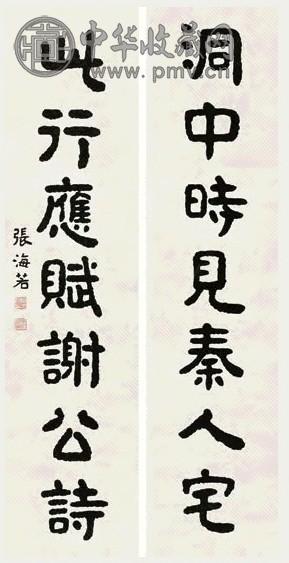 洞中時見秦人宅
此行應賦謝公詩
張海若
中华收藏网
www.pmv.cn